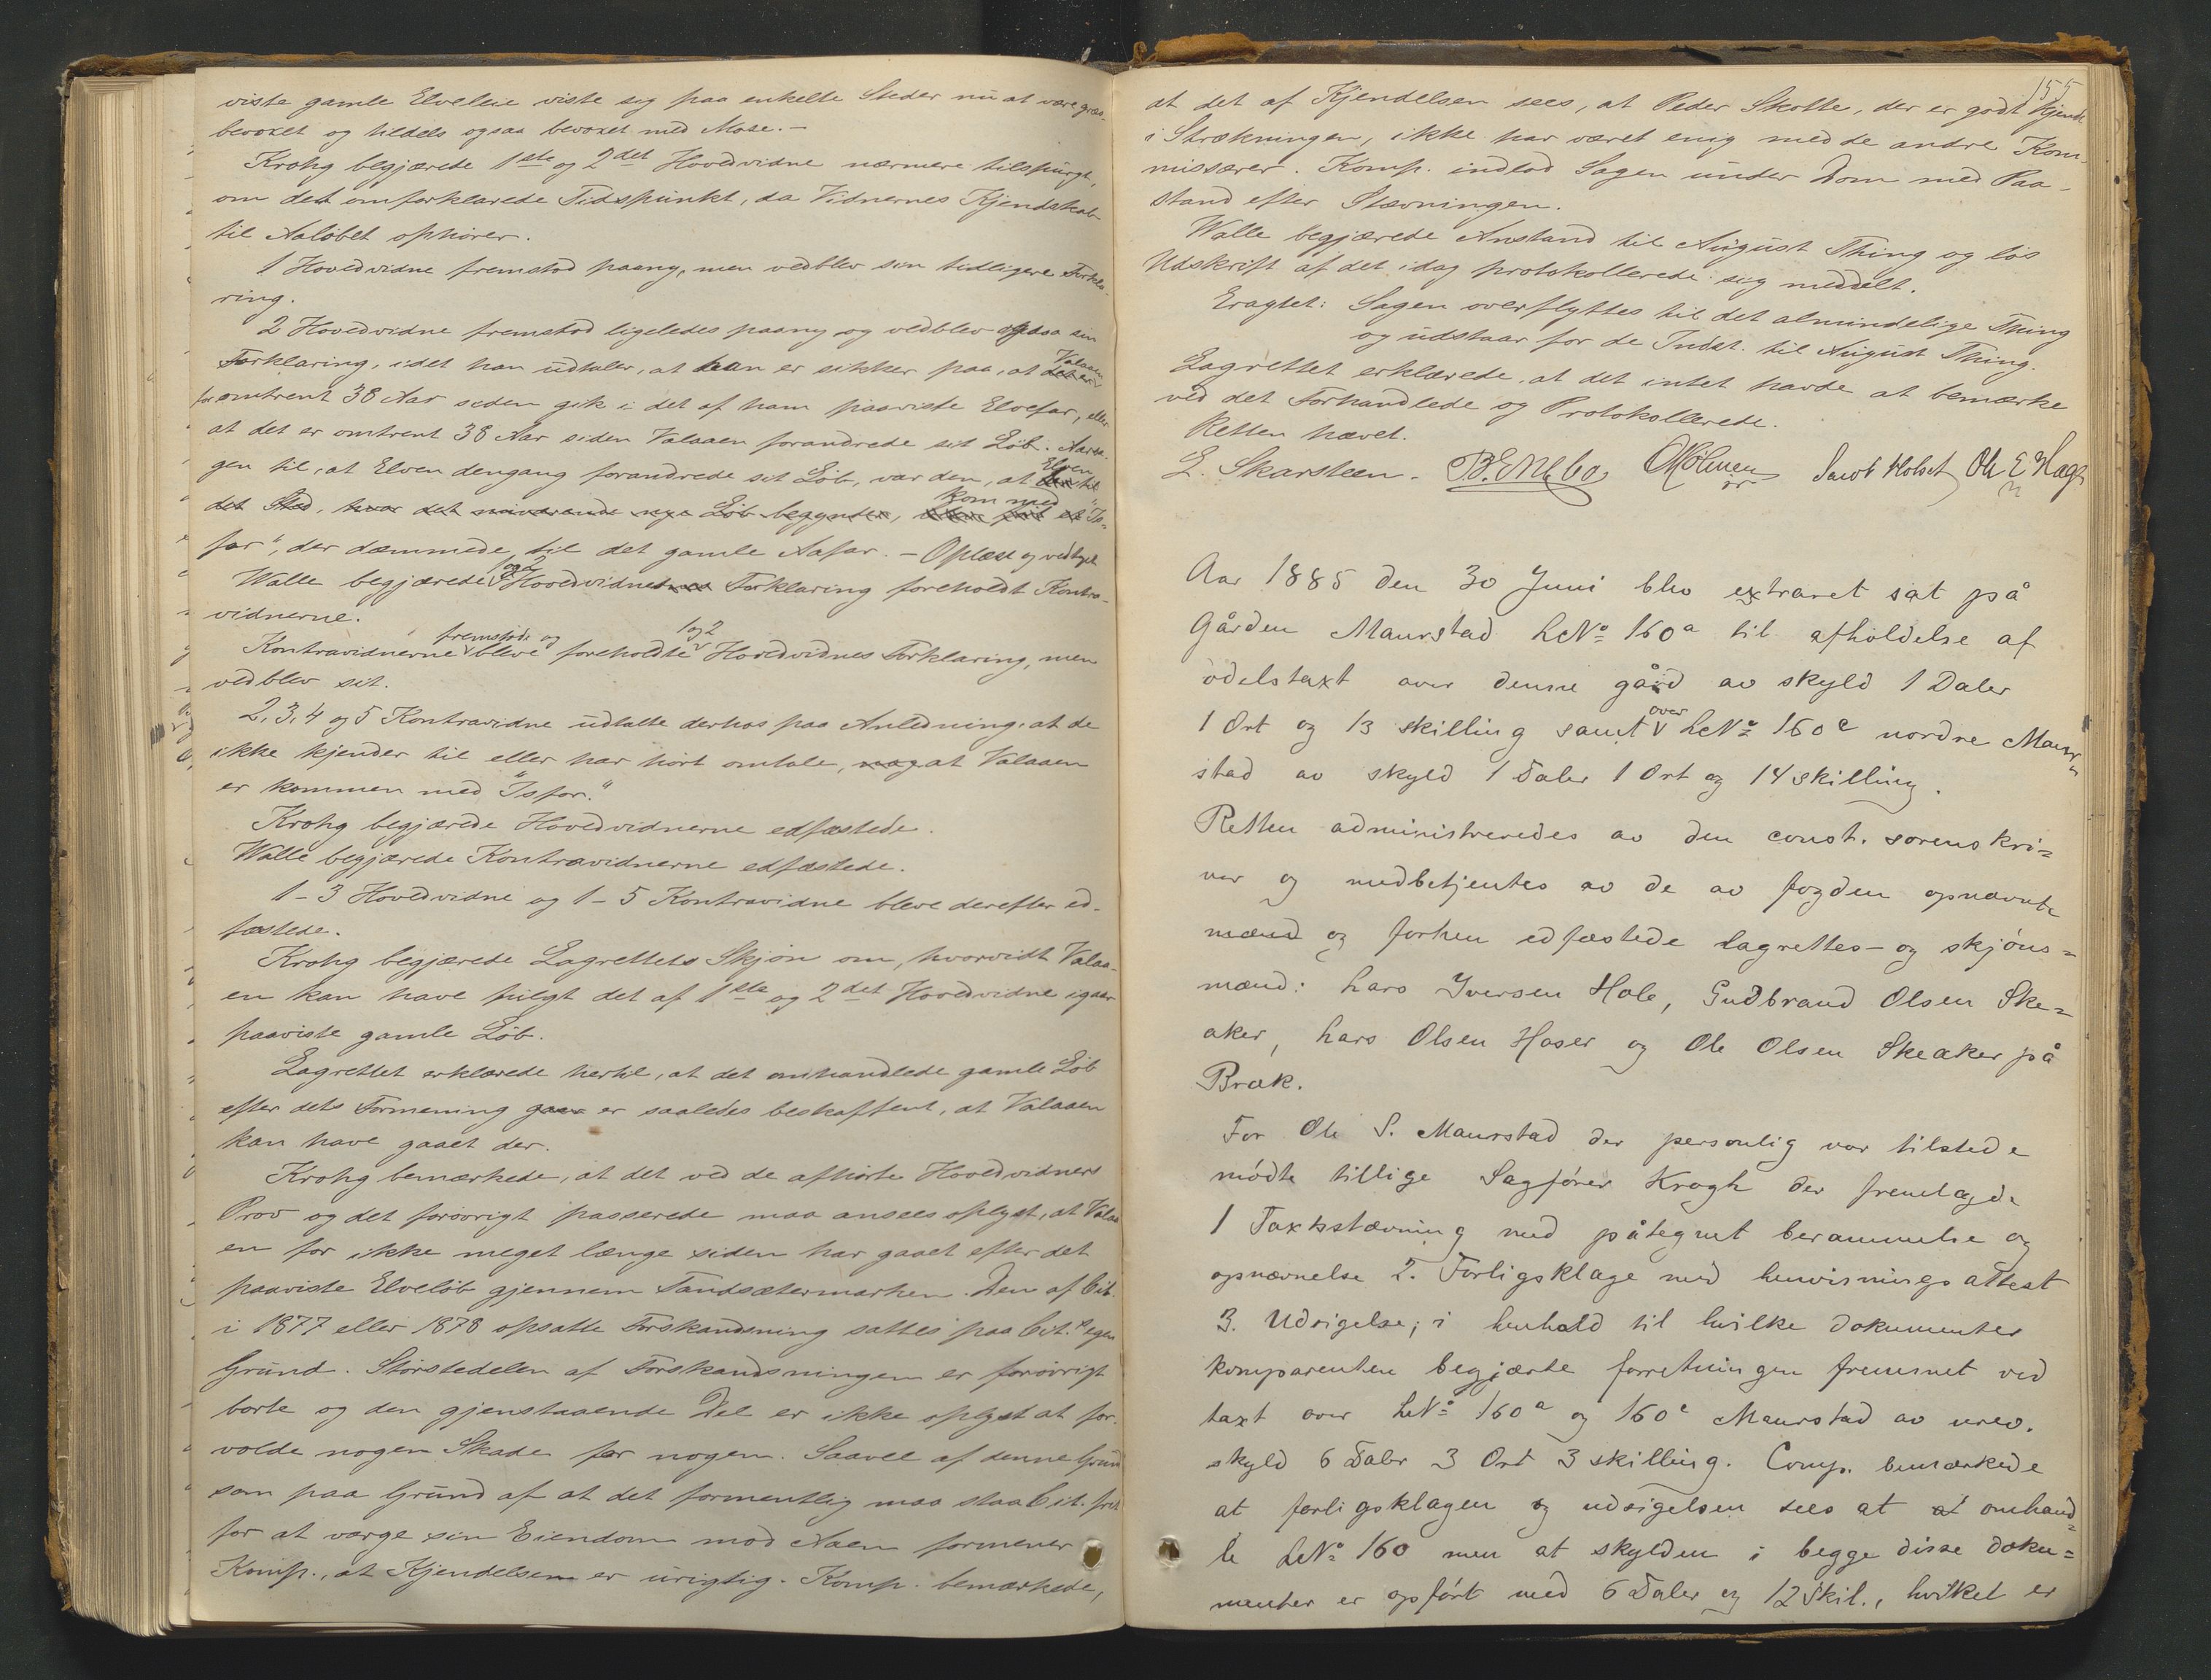 viste gamle Elveleie viste sig paa enkelte Steder nu at være græs-
bevoxet og tildels ogsaa bevoxet med Mose.-
Krohg begjærede 1ste og 2det Hovedvidne nærmere tilspurgt,
om det omforklarede Tidspunkt, da Vidnernes Kjendskab
til Aaløbet ophører.
1 Hovedvidne fremstod paany, men vedblev sin tidligere Forkla-
ring.
2 Hovedvidne fremstod ligeledes paany og vedblev ogsaa sin
Forklaring, idet han udtaler, at han er sikker paa, at Valaaen
for omtrent 38 Aar siden gik i det af ham paaviste Elvefar, eller
at det er omtrent 38 Aar siden Valaaen forandrede sit Løb. Aarsa-
gen til, at Elven dengang forandrede sit Løb, var den, at Elven
det Sted, hvor det nuværende nye Løb begynder, kom med "Is-
for", der dæmmede til det gamle Aafar. - Oplæst og vedtaget
Walle begjærede 1 og 2 Hovedvidnes Forklaring foreholdt Kontra-
vidnerne.
Kontravidnerne fremstode og bleve foreholdte 1 og 2 Hovedvidnes Forklaring, men
vedblev sit.
2, 3, 4 og 5 Kontravidne udtalte derhos paa Anledning, at de
ikke kjender til eller har hørt omtale, at Valaaen
er kommen med "Isfor."
Krohg begjærede Hovedvidnerne edfæstede.
Walle begjærede Kontravidnerne edfæstede.
1-3 Hovedvidne og 1-5 Kontravidne bleve derefter ed-
fæstede.
Krohg begjærede Lagrettets Skjøn om, hvorvidt Valaa-
en kan have fulgt det af 1ste og 2det Hovedvidne igaar
paaviste gamle Løb.
Lagrettet erklærede hertil, at det omhandlede gamle Løb
efter dets Formening er saaledes beskaffent, at Valaaen
kan have gaaet der.
Krohg bemærkede, at det ved de afhørte Hovedvidners
Prov og det forøvrigt passerede maa ansees oplyst, at Valaa
en for ikke meget længe siden har gaaet efter det
paaviste Elveløb gjennem Tandsætermarken. Den af Cit.
i 1877 eller 1878 opsatte Forskandsning sattes paa Cit.s egen
Grund. Størstedelen af Forskandsningen er forøvrigt
borte og den gjenstaaende Del er ikke oplyst at for-
volde nogen Skade for nogen. Saavel af denne Grund
som paa Grund af at det formentlig maa staa Cit. frit
for at værge sin Eiendom mod Aaen formener
Komp., at Kjendelsen er urigtig. Komp. bemærkede,
155
at det af Kjendelsen sees, at Peder Skotte, der er godt kjendt
i Strækningen, ikke har været enig med de andre Kom-
missærer. Komp. indlod Sagen under Dom med Paa-
stand efter Stævningen.
Walle begjærede Anstand til August Thing og løs
Udskrift af det idag protokollerede sig meddelt.
Eragtet: Sagen overflyttes til det almindelige Thing
og udstaar for de Indst. til August Thing.
Lagrettet erklærede, at det intet havde at bemærke
ved det Forhandlede og Protokollerede.
Retten hævet.
L. Skarsteen. Jacob Holset Ole E Hage
Aar 1885 den 30 Juni blev extraret sat på
Gården Maurstad LNo 160a til afholdelse af
odelstaxt over denne gård av skyld 1 Daler
1 Ort og 13 skilling samt over LNo 160c nordre Maur=
stad av skyld 1 Daler 1 Ort og 14 skilling.
Retten administreredes av den const. sorenskri=
ver og medbetjentes av de av fogden opnævnte
mænd og forhen edfæstede lagrettes- og skjöns=
mænd: Lars Iversen Hole, Gudbrand Olsen Ske=
aker, Lars Olsen Hoser og Ole Olsen Skeaker på
Bræk.
For Ole S. Maurstad der personlig var tilstede
mödte tillige Sagförer Krogh der fremlagde
1 Taxtsstævning med påtegnet berammelse og
opnævnelse 2. Forligsklage med henvisningsattest
3. Udsigelse; i henhold til hvilke dokumenter
komparenten begjærte forretningen fremmet ved
taxt over LNo 160a og 160c Maurstad av urev.
skyld 6 Daler 3 Ort 3 skilling. Comp. bemærkede
at forligsklagen og udsigelsen sees at omhand=
le LNo 160 men at skylden i begge disse doku=
menter er opfört med 6 Daler og 12 Skil., hvilket er